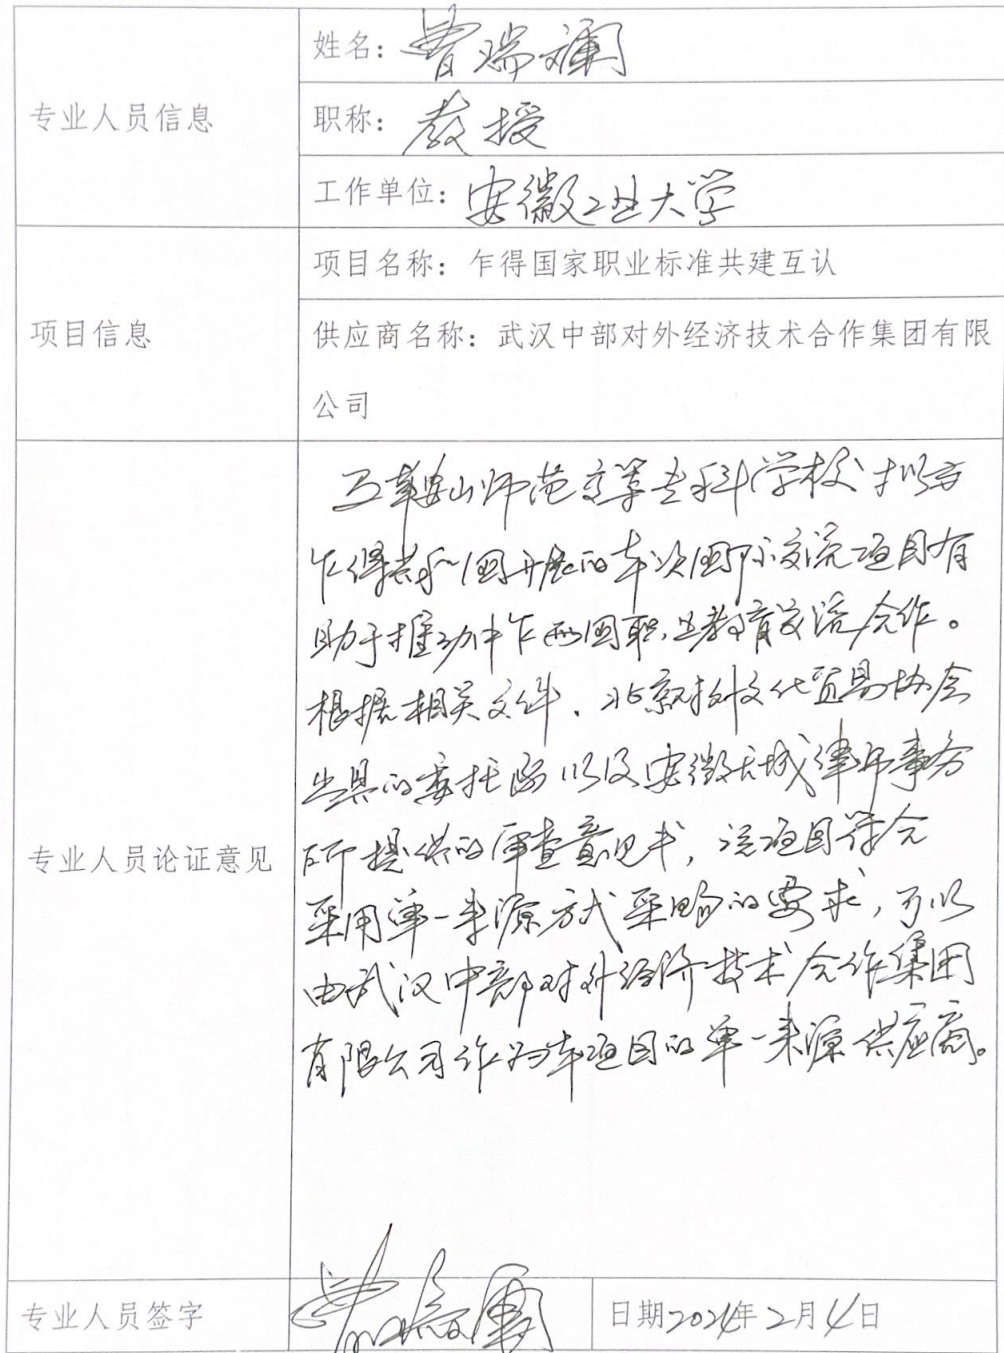 专业人员信息
姓名：曾瑞斓
职称：教授
工作单位：安徽工业大学
项目信息
项目名称：乍得国家职业标准共建互认
供应商名称：武汉中部对外经济技术合作集团有限
公司
专业人员论证意见
马鞍山师范高等专科学校拟在
乍得共和国开展的本次国际交流项目有
助于推动中乍两国职业教育交流合作。
根据相关文件、北京对外文化贸易协会
出具的委托函以及安徽天城律师事务
所提供的审查意见书，该项目符合
采用单一来源方式采购的要求，可以
由武汉中部对外经济技术合作集团
有限公司作为本项目的单一来源供应商。
专业人员签字
曾瑞斓
日期2024年2月4日